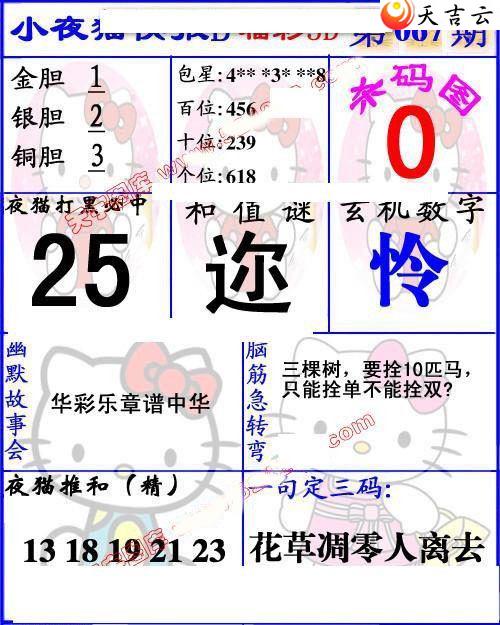 天吉云
小夜猫快报D 福彩3D 第007期
金胆 1
银胆 2
铜胆 3
包星:4** *3* **8
百位:456
十位:239
个位:618
杀码图
0
夜猫打黑必中
25
和值谜
迩
玄机数字
怜
幽默故事会
华彩乐章谱中华
脑筋急转弯
三棵树，要拴10匹马，
只能拴单不能拴双？
夜猫推和（精）
13 18 19 21 23
一句定三码：
花草凋零人离去